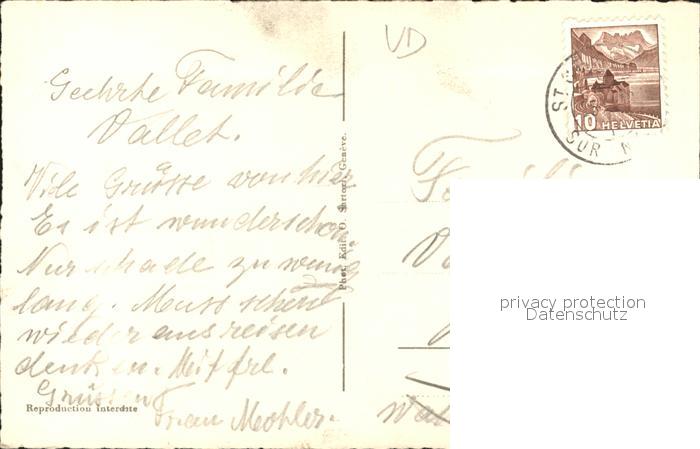 VD
Geehrte Familie
Vallet.
Viele Grüsse von hier
Es ist wunderschön.
Nur schade zu wenig
lang. Muss schon
wieder ans reisen
denken. Mit frl.
Grüssen
Frau Mohler.
Reproduction interdite
Phot. Edit. O. Sartori, Genève.
ST.
SUR
10 HELVETIA
Fa
privacy protection
Datenschutz